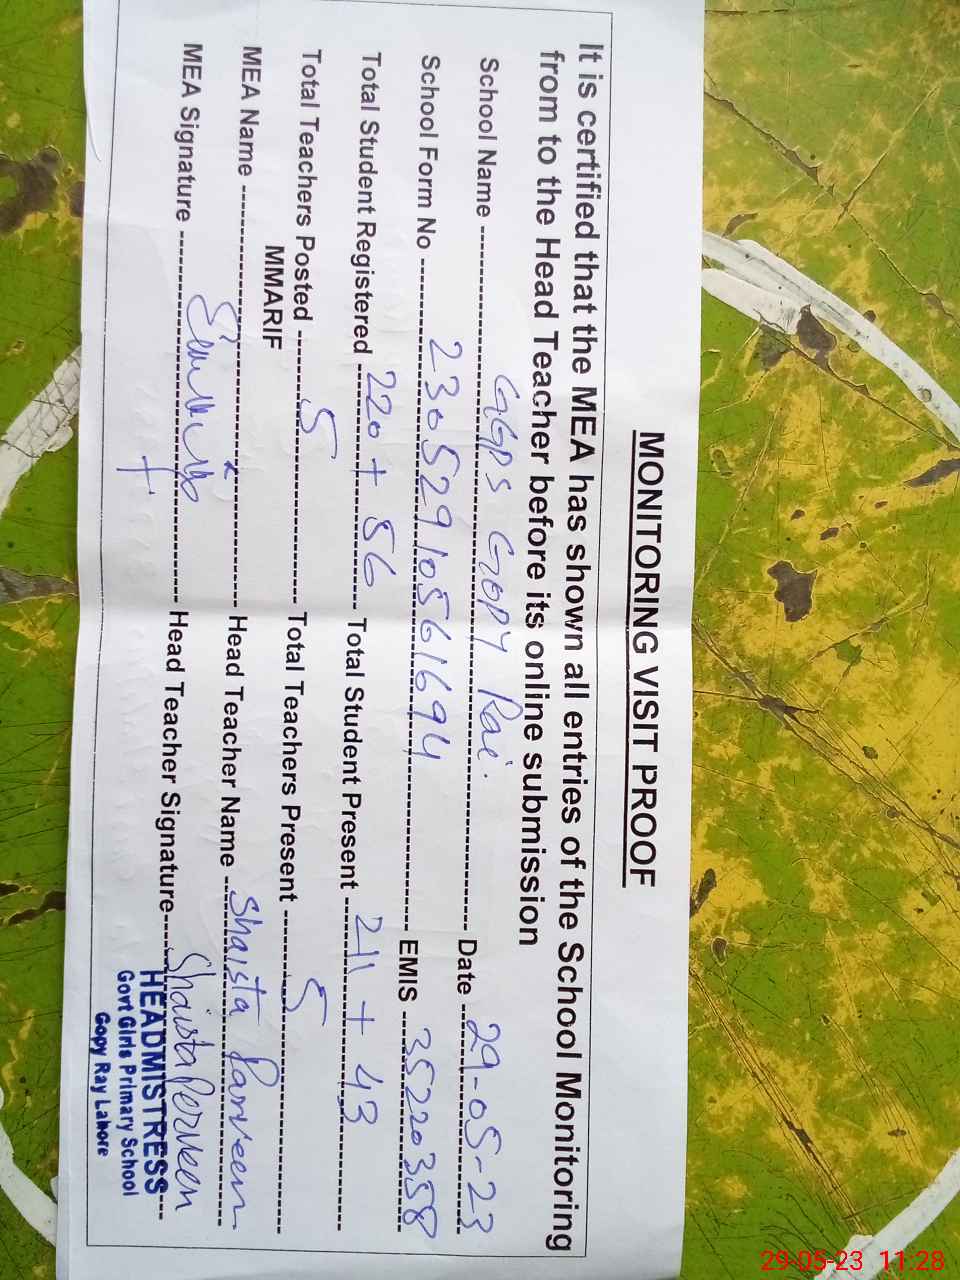 MONITORING VISIT PROOF
It is certified that the MEA has shown all entries of the School Monitoring
from to the Head Teacher before its online submission
School Name GGPS GOPY Rai. Date 29-05-23
School Form No 23052910561694 EMIS 35220358
Total Student Registered 220 + 56 Total Student Present 211 + 43
Total Teachers Posted 5 Total Teachers Present 5
MMARIF
MEA Name Head Teacher Name Shaista Parveen
MEA Signature Head Teacher Signature Shaista Perveen
HEADMISTRESS
Govt Girls Primary School
Gopy Ray Lahore
29-05-23 11:28